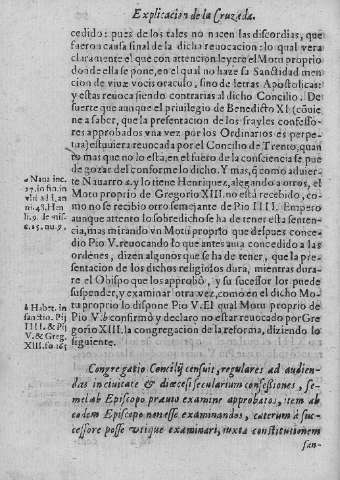 Explicacion de la Cruzada.
cedido: pues de los tales no nacen las discordias, que
fueron causa final de la dicha reuocacion: lo qual vera
claramente el que con attencion leyere el Motu proprio
donde ella se pone, en el qual no haze su Sanctidad men
cion de viuæ vocis oraculo, sino de letras Apostolicas:
y estas reuoca siendo contrarias al dicho Concilio. De
suerte que aunque el priuilegio de Benedicto XI (cõuie
ne a saber, que la presentacion de los frayles confesso-
res approbados vna vez por los Ordinarios es perpe-
tua) estuuiera reuocada por el Concilio de Trento, quan
to mas que no lo està, en el fuero de la consciencia se pue
de gozar del conforme lo dicho. Y mas, q̃ como aduier-
te Nauarro a. y lo tiene Henriquez, alegando a otros, el
Motu proprio de Gregorio XIII. no està recebido, co-
mo no se recibio otro semejante de Pio IIII. Empero
aunque attento lo sobredicho se ha de tener esta senten-
cia, mas mirando vn Motu proprio que despues conce-
dio Pio V. reuocando lo que antes auia concedido a las
ordenes, dizen algunos que se ha de tener, que la pre-
sentacion de los dichos religiosos dura, mientras dura-
re el Obispo que los approbò, y su successor los puede
suspender, y examinar otra vez, como en el dicho Mo-
tu proprio lo dispone Pio V. El qual Motu proprio de
Pio V. b confirmò y declaro no estar reuocado por Gre
gorio XIII. la congregacion de la reforma, diziendo lo
siguiente.
a Naua. in c.
li. 9. de
b Habet. in
sanctio. Pij
IIII. & Pij
V. & Greg.
XIII. fo. 165
Congregatio Concilij censuit, regulares ad audien-
das in ciuitate & diœcesi secularium confessiones, se-
mel ab Episcopo præuio examine approbatos, item ab
eodem Episcopo non esse examinandos, cæterum à suc-
cessore posse vtique examinari, iuxta constitutionem
san-